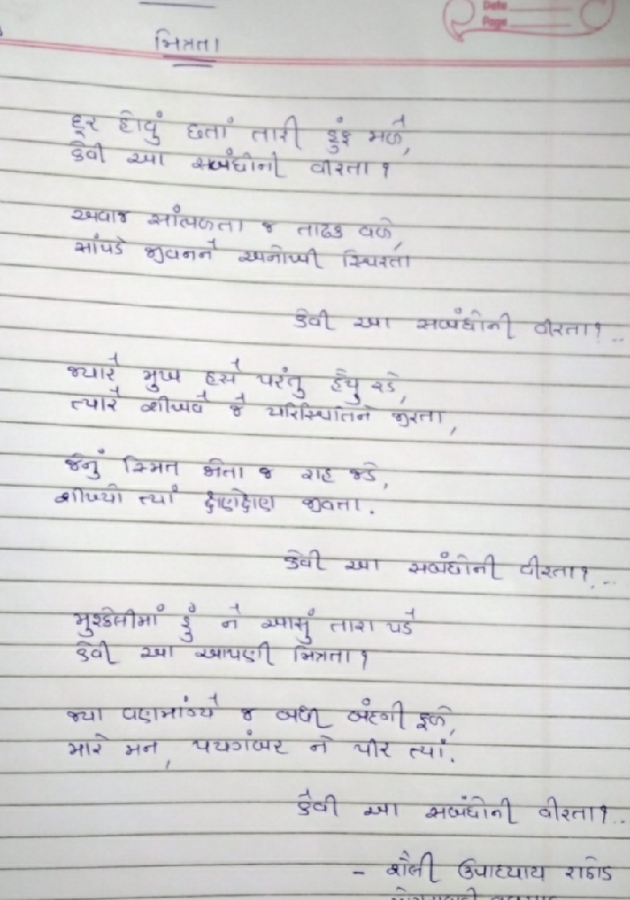 Date
Page
મિત્રતા
દૂર હોવું છતાં તારી હુંફ મળે,
કેવી આ સબંધોની વીરતા?
અવાજ સાંભળતા જ તાઢક વળે,
સાંપડે જીવનને અનોખી સ્થિરતા
કેવી આ સબંધોની વીરતા?..
જ્યારે મુખ હસે પરંતુ હૈયુ રડે,
ત્યારે શીખવે જે પરિસ્થિતિને જીરતા,
જેનું સ્મિત જોતા જ રાહ જડે,
શીખ્યો ત્યાં ક્ષણેક્ષણ જીવતા.
કેવી આ સબંધોની વીરતા?...
મુશ્કેલીમાં હું ને આસું તારા પડે
કેવી આ આપણી મિત્રતા?
જ્યા વણમાંગ્યે જ બધી બંદગી ફળે,
મારે મન, પયગંબર ને પીર ત્યાં.
કેવી આ સબંધોની વીરતા?..
- શૈલી ઉપાધ્યાય રાઠોડ